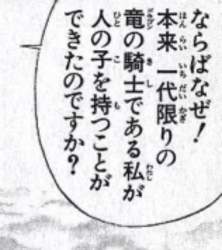 ならばなぜ！
本来 一代限りの
竜の騎士である私が
人の子を持つことが
できたのですか？